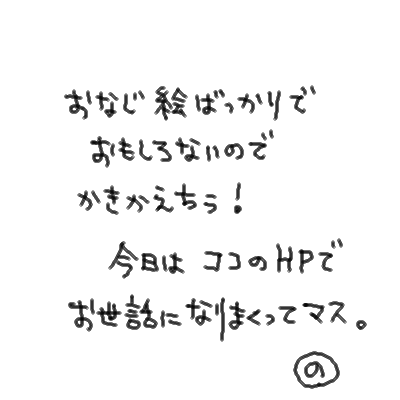 おなじ絵ばっかりで
おもしろないので
かきかえちう!
今日は ココのHPで
お世話になりまくってマス。
の